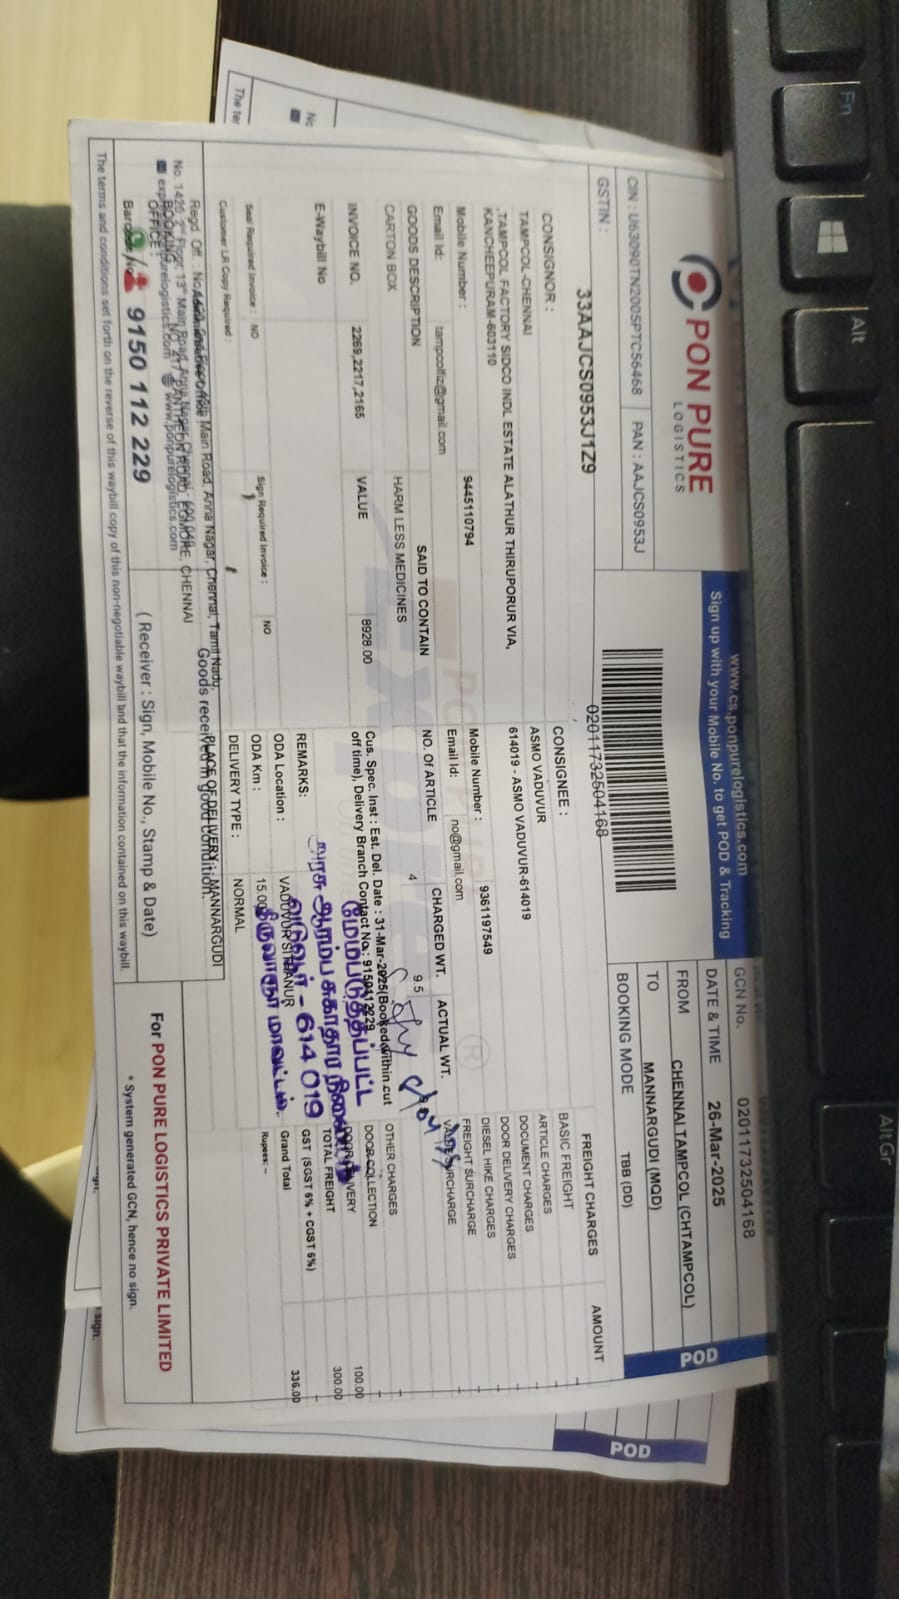 PON PURE
LOGISTICS
www.cs.ponpurelogistics.com
Sign up with your Mobile No. to get POD & Tracking
CIN : U63090TN2005PTC56468 PAN : AAJCS0953J
GSTIN :
33AAJCS0953J1Z9
02011732504168
GCN No. 02011732504168
DATE & TIME 26-Mar-2025
FROM CHENNAI TAMPCOL (CHTAMPCOL)
TO MANNARGUDI (MQD)
BOOKING MODE TBB (DD)
POD
CONSIGNOR :
TAMPCOL-CHENNAI
,TAMPCOL FACTORY SIDCO INDL ESTATE ALATHUR THIRUPORUR VIA,
KANCHEEPURAM-603110
Mobile Number : 9445110794
Email Id: tampcolfiz@gmail.com
CONSIGNEE :
ASMO VADUVUR
614019 - ASMO VADUVUR-614019
Mobile Number : 9361197549
Email Id: no@gmail.com
GOODS DESCRIPTION SAID TO CONTAIN NO. Of ARTICLE CHARGED WT. ACTUAL WT.
CARTON BOX HARM LESS MEDICINES 4 95
INVOICE NO. 2269,2217,2165 VALUE 8928.00
E-Waybill No
Cus. Spec. Inst : Est. Del. Date : 31-Mar-2025(Booked within cut
off time), Delivery Branch Contact No.: 9150112229
REMARKS:
ODA Location : VADUVUR SIRANUR
ODA Km : 15.00
DELIVERY TYPE : NORMAL
Seal Required Invoice : NO Sign Required Invoice : NO
Customer LR Copy Required :
FREIGHT CHARGES AMOUNT
BASIC FREIGHT -
ARTICLE CHARGES -
DOCUMENT CHARGES -
DOOR DELIVERY CHARGES -
DIESEL HIKE CHARGES -
FREIGHT SURCHARGE -
VALUE SURCHARGE -
OTHER CHARGES -
DOOR COLLECTION -
DOOR DELIVERY 100.00
TOTAL FREIGHT 300.00
GST (SGST 6% + CGST 6%) -
Grand Total 336.00
Rupees: --
மேம்படுத்தப்பட்ட
அரசு ஆரம்ப சுகாதார
வடுவூர் - 614 019
திருவாரூர் மாவட்டம்.
PLACE OF DELIVERY : MANNARGUDI
Goods received in good condition.
BOOKING
OFFICE :
No. 217, PANTHEON ROAD, EGMORE, CHENNAI
www.ponpurelogistics.com
9150 112 229
( Receiver : Sign, Mobile No., Stamp & Date)
For PON PURE LOGISTICS PRIVATE LIMITED
* System generated GCN, hence no sign.
The terms and conditions set forth on the reverse of this waybill copy of this non-negotiable waybill and that the information contained on this waybill.
POD
Fn
Alt
AltGr